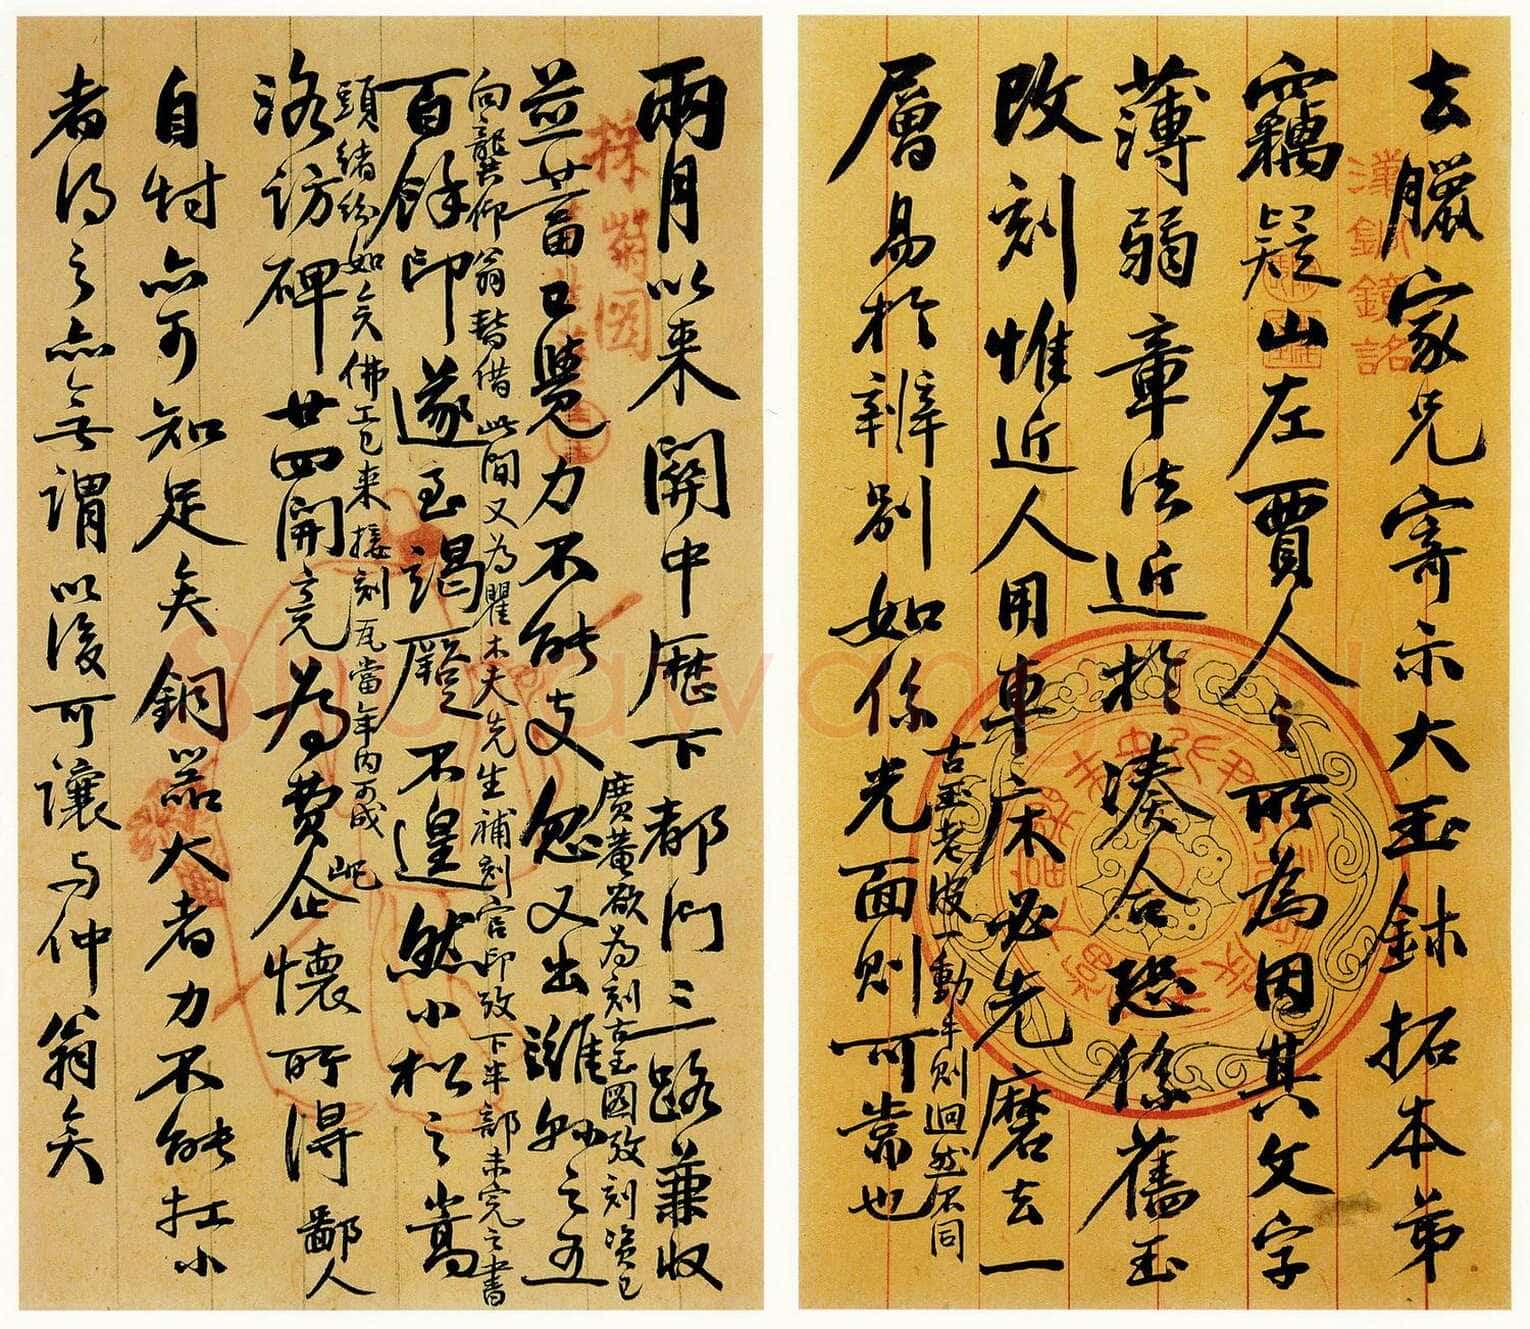 去臘家兄寄示大玉鉥拓本弟
竊疑山左賈人之所為因其文字
薄弱章法近於湊合恐係舊玉
改刻惟近人用車床必先磨去一
古玉老皮一動手則迥然不同
層易於辨別如係光面則可靠也
兩月以來關中歷下都門三路兼收
廣菴欲為刻古玉圖攷刻資已
並蓄已覺力不能支忽又出濰之五
向龔仰翁暫借此間又為瞿木夫先生補刻官印攷下半部未完之書
百餘印遂至竭蹶不遑然小松之嵩
頭緒紛如矣佛工已來接刻瓦當年內可成
洛訪碑廿四開竟為費屺懷所得鄙人
自忖亦可知足矣銅器大者力不能扛小
者得之亦無謂以後可讓與仲翁矣
採菊圖